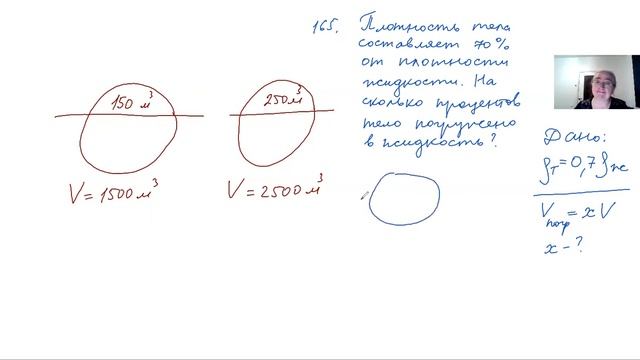 150 м³
V = 1500 м³
250 м³
V = 2500 м³
165. Плотность тела
составляет 70%
от плотности
жидкости. На
сколько процентов
тело погружено
в жидкость?
Дано:
ρт = 0,7 ρж
Vпогр = xV
x - ?